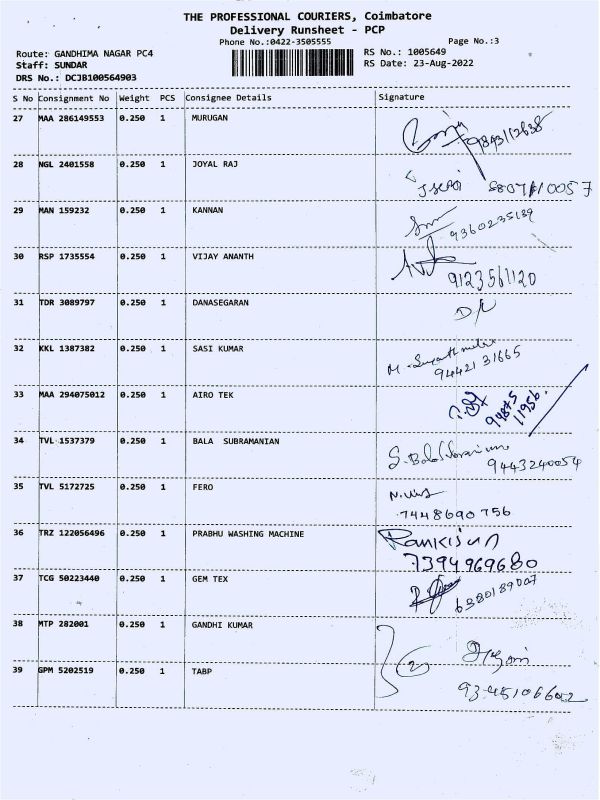 THE PROFESSIONAL COURIERS, Coimbatore
Delivery Runsheet - PCP
Phone No.:0422-3505555 Page No.:3
Route: GANDHIMA NAGAR PC4 RS No.: 1005649
Staff: SUNDAR RS Date: 23-Aug-2022
DRS No.: DCJB100564903
S No Consignment No Weight PCS Consignee Details Signature
27 MAA 286149553 0.250 1 MURUGAN
9843112638
28 NGL 2401558 0.250 1 JOYAL RAJ
29 MAN 159232 0.250 1 KANNAN
9360235189
30 RSP 1735554 0.250 1 VIJAY ANANTH
9123561120
31 TDR 3089797 0.250 1 DANASEGARAN
32 KKL 1387382 0.250 1 SASI KUMAR
9442131665
33 MAA 294075012 0.250 1 AIRO TEK
94875
11956.
34 TVL 1537379 0.250 1 BALA SUBRAMANIAN
9443240054
35 TVL 5172725 0.250 1 FERO
7448690756
36 TRZ 122056496 0.250 1 PRABHU WASHING MACHINE
7394969680
37 TCG 50223440 0.250 1 GEM TEX
6380189007
38 MTP 282001 0.250 1 GANDHI KUMAR
39 GPM 5202519 0.250 1 TABP